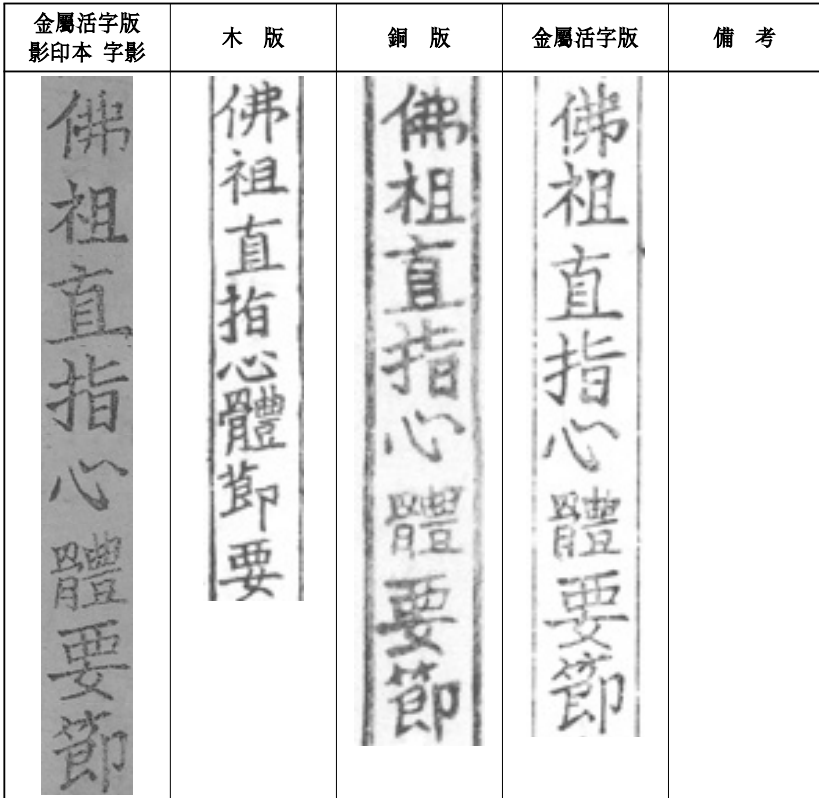 金屬活字版
影印本 字影
木 版
銅 版
金屬活字版
備 考
佛祖直指心體要節
佛祖直指心體節要
佛祖直指心體要節
佛祖直指心體要節